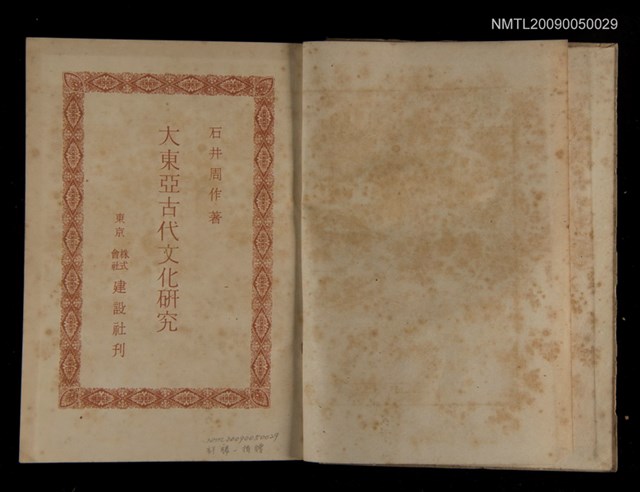 NMTL20090050029
石井周作著
大東亞古代文化研究
東京 株式會社 建設社刊
NMTL20090050029